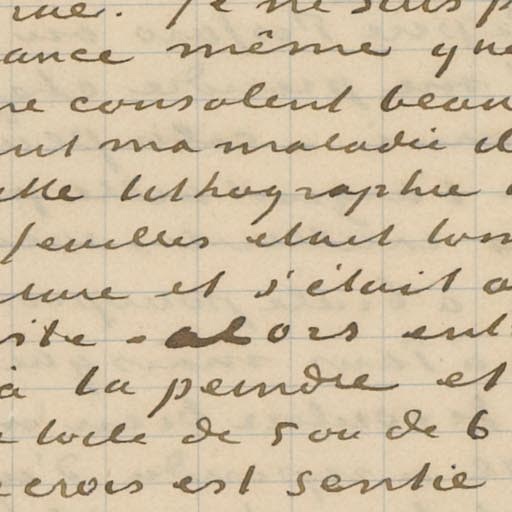 rue. Je ne suis p
ance même que
me consolent beau
ant ma maladie il
ette lithographie
feuilles était tom
ture et s'était a
site - alors ent
à la peindre et
toile de 5 ou de 6
crois est sentie